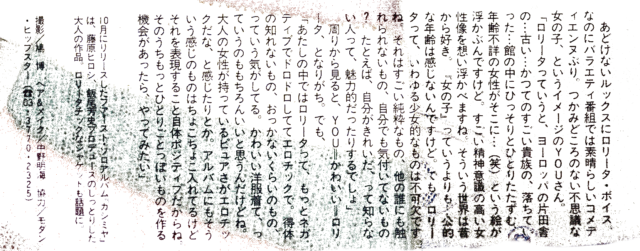 あどけないルックスにロリータ・ボイス。
なのにバラエティ番組では素晴らしいコメデ
ィエンヌぶり。つかみどころのない不思議な
女の子、というイメージのYOUさん。
「ロリータっていうと、ヨーロッパの片田舎
の…古い…かつてのすごい貴族の、落ちてし
まった…館の中にひっそりとひとりたたずむ
年齢不詳の女性がそこに…（笑）という絵が
浮かぶんですけど。すごく精神意識の高い女
性像を想い浮かべますね。そういう世界は昔
から好き。「女の子」っていうよりも、公的
な年齢は感じないんですけど。でも、ロリー
タって、いわゆる少女的なものは不可欠です
ね。それはすごい純粋なもの、他の誰にも触
れられないもの、自分でも気付いてないもの
？　たとえば、自分がきれいだ、って知らな
い人って、魅力的だったりするでしょ」
　周りから見ると、YOU＝かわいい＝ロリ
ータ、となりがち。でも、
「あたしの中ではロリータって、もっとネガ
ティブでドロドロしててエロチックで、得体
の知れないもの、おっかないくらいのもの、
っていう気がしてる。かわいい洋服着て、っ
ていうのももちろんいいと思うんだけどね。
大人の女性が持っているピュアさがエロチッ
クだな、と感じたりとか。アルバムにもそう
いう感じのものはちょこちょこ入れてるけど
それを表現すること自体ポジティブだからね
そのうちもっとひとりごとっぽいものを作る
機会があったら、やってみたい」
10月にリリースしたファーストソロアルバム『カシミヤ』
は、藤原ヒロシ、飯尾芳史プロデュースのしっとりした
大人の作品。ロリータチックなジャケットも話題に
撮影／嶋 博 ヘア＆メイク／中野明海 協力／モダン
・ヒップスター（☎03・3710・2325）